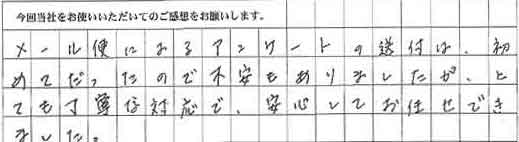 今回当社をお使いいただいてのご感想をお願いします。
メール便によるアンケートの送付は、初
めてだったので不安もありましたが、と
ても丁寧な対応で、安心してお任せでき
ました。